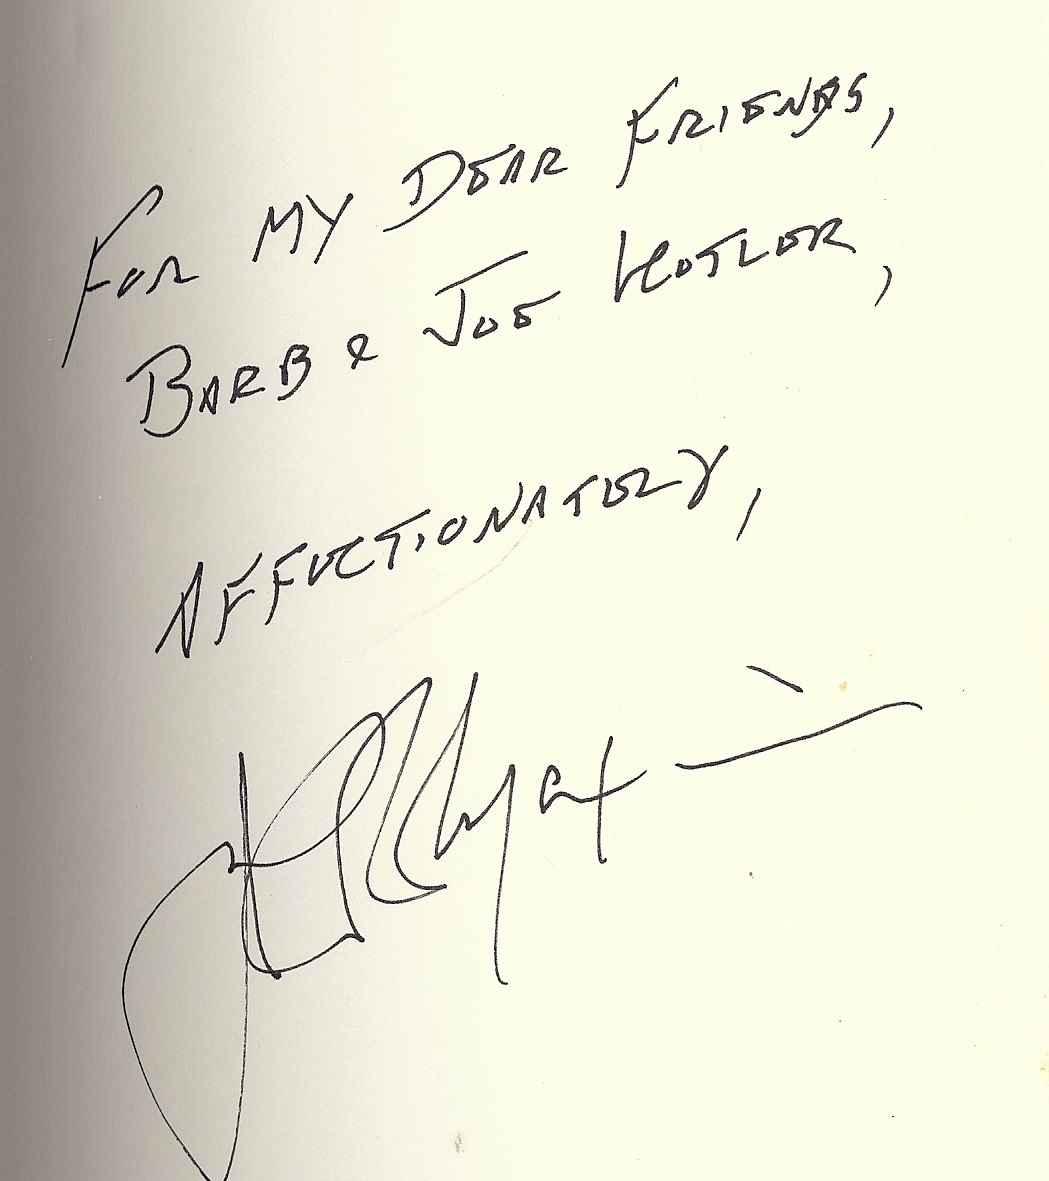 FOR MY DEAR FRIENDS,
BARB & JOE HOTLER,
AFFECTIONATELY,